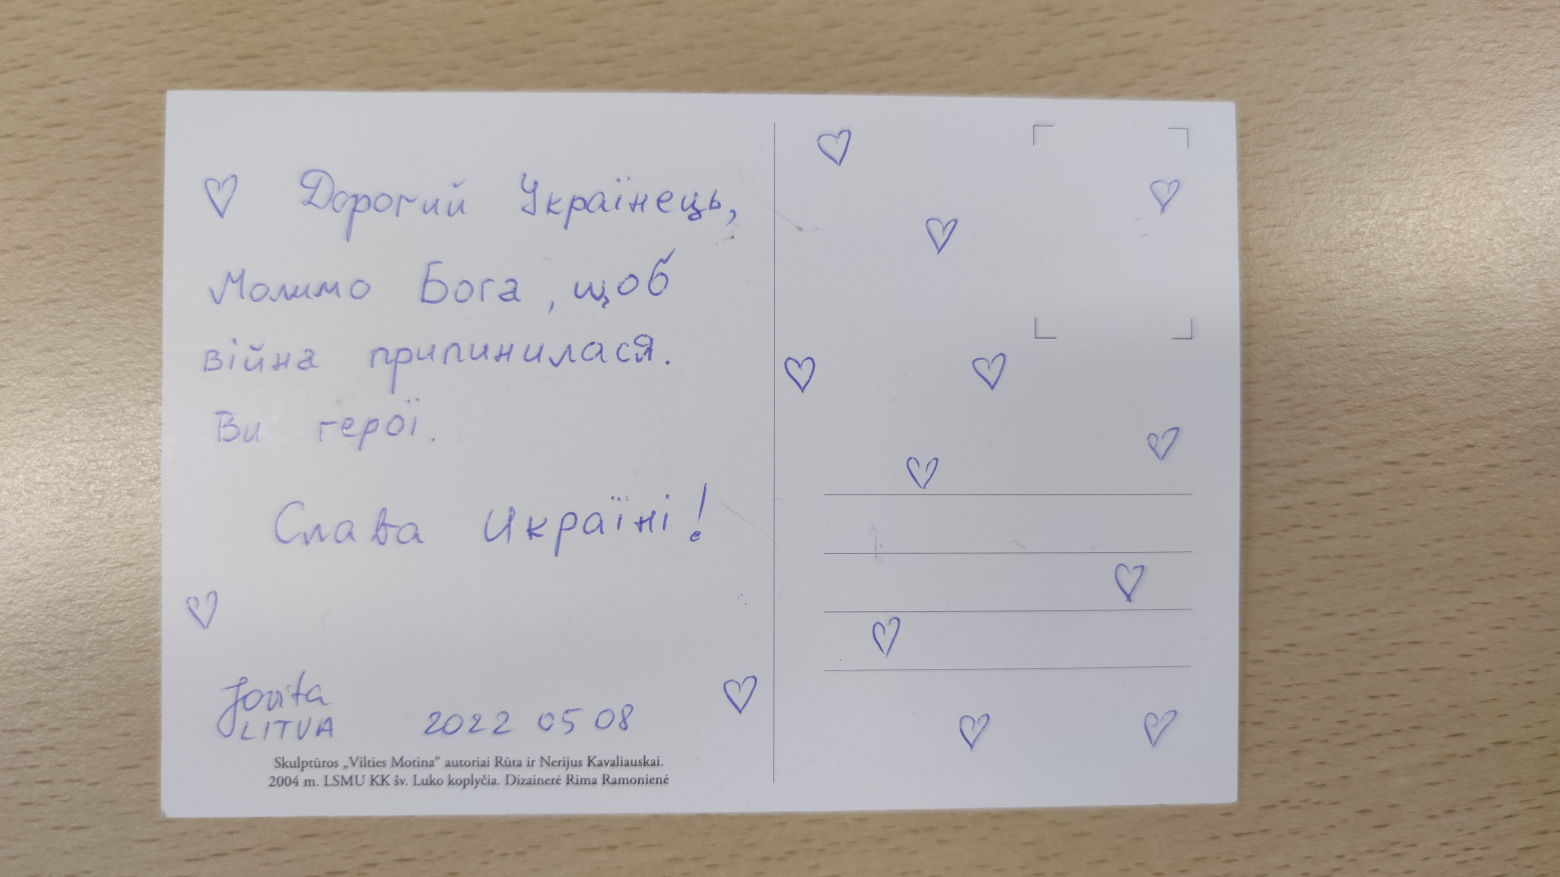 Дорогий Українець,
Молимо Бога, щоб
війна припинилася.
Ви герої.
Слава Україні!
Jovita
LITVA 2022 05 08
Skulptūros „Vilties Motina“ autoriai Rūta ir Nerijus Kavaliauskai.
2004 m. LSMU KK šv. Luko koplyčia. Dizainerė Rima Ramonienė